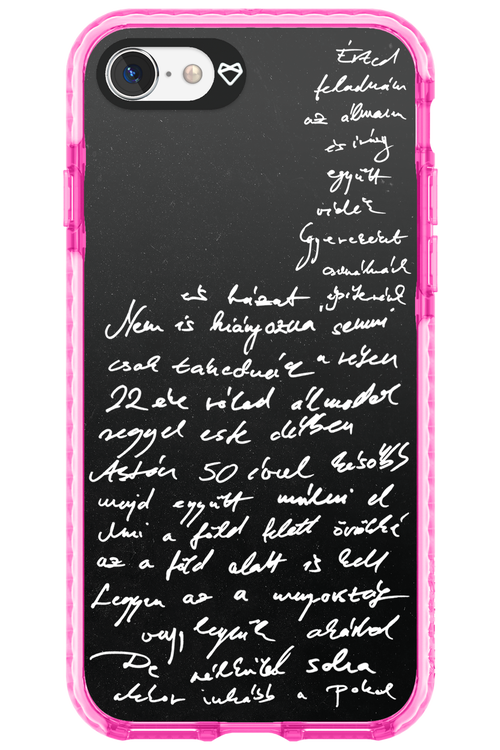 Érted
feladnám
az álmaim
és irány
együtt
vidék
Gyerekeket
csinálnánk
és házat építenénk
Nem is hiányozna semmi
csak takednék a részen
22 éve rólad álmodok
reggel este délben
Aztán 50 évvel később
majd együtt múlni el
Ami a föld felett örökké
az a föld alatt is kell
Legyen az a mennyország
vagy legyünk akárhol
De nélküled soha
akkor inkább a Pokol